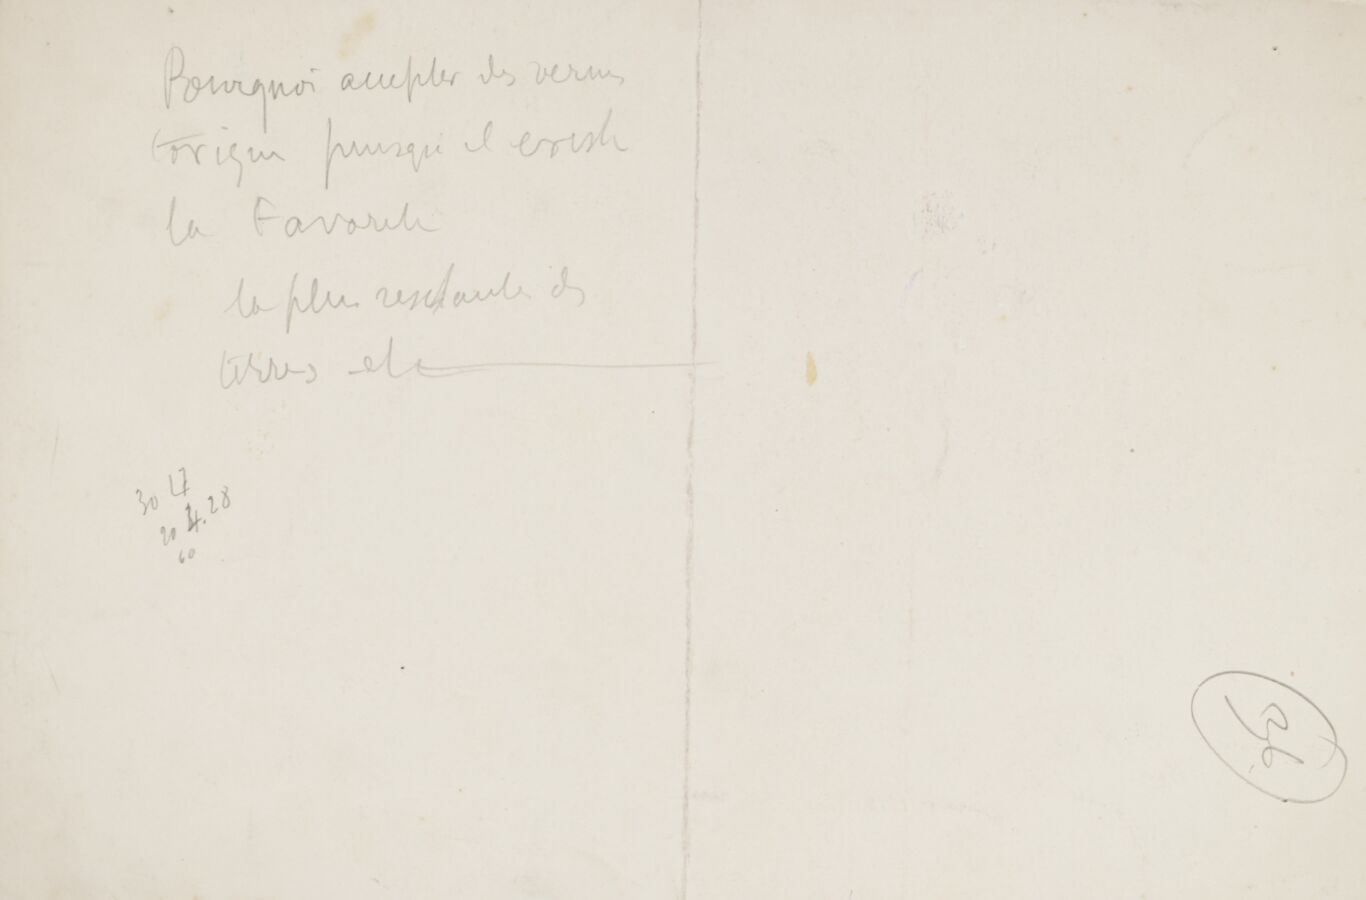 Pourquoi accepter des verres
torique puisqu'il existe
la Favorite
la plus résistante des
terres etc
30 17
20 4.28
60